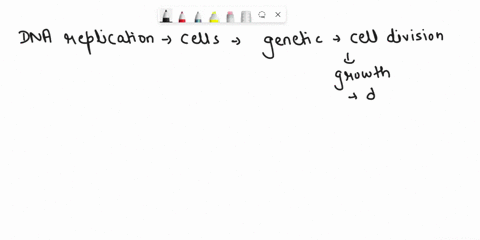 DNA replication → cells → genetic → cell division
↓
growth
→ d